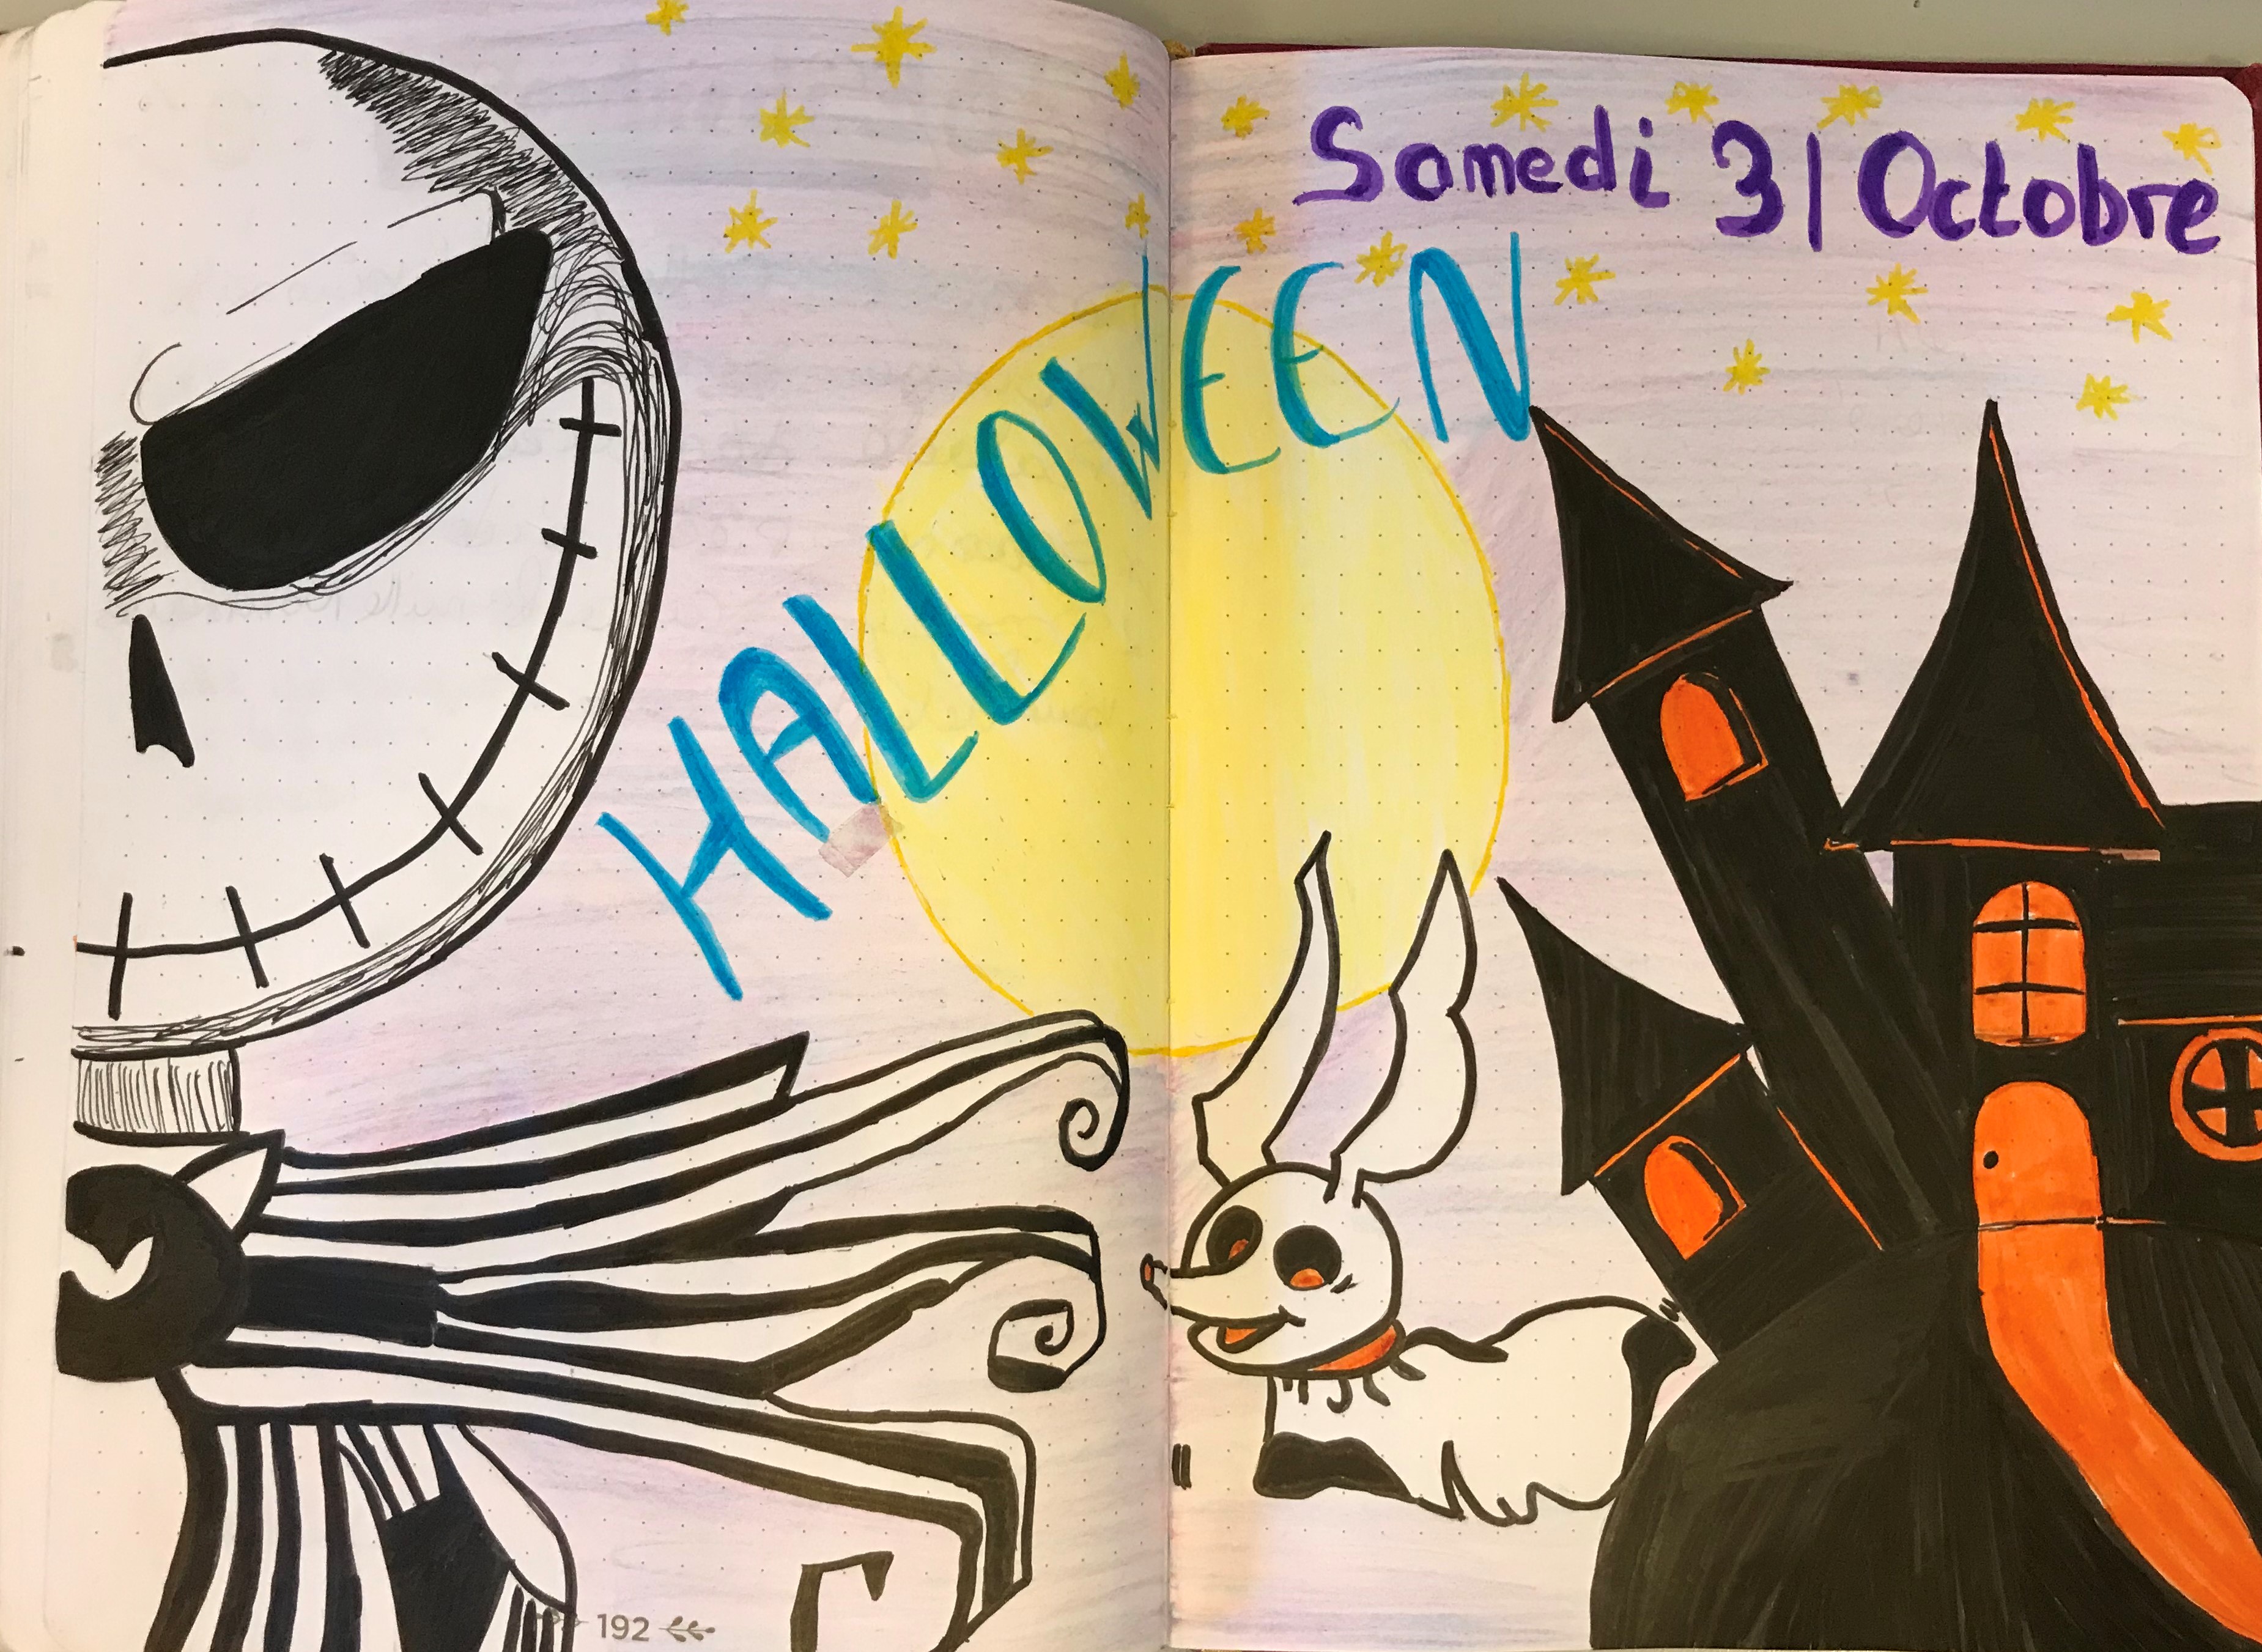 Samedi 31 Octobre
HALLOWEEN
192